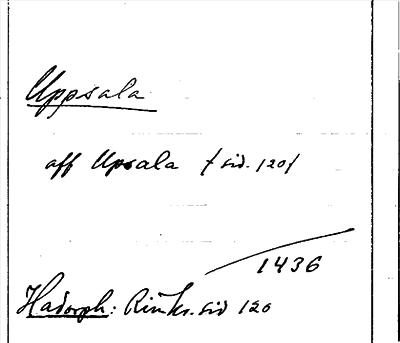 Uppsala
aff Upsala /sid. 120/
1436
Hadorph: Rimkr. sid 120